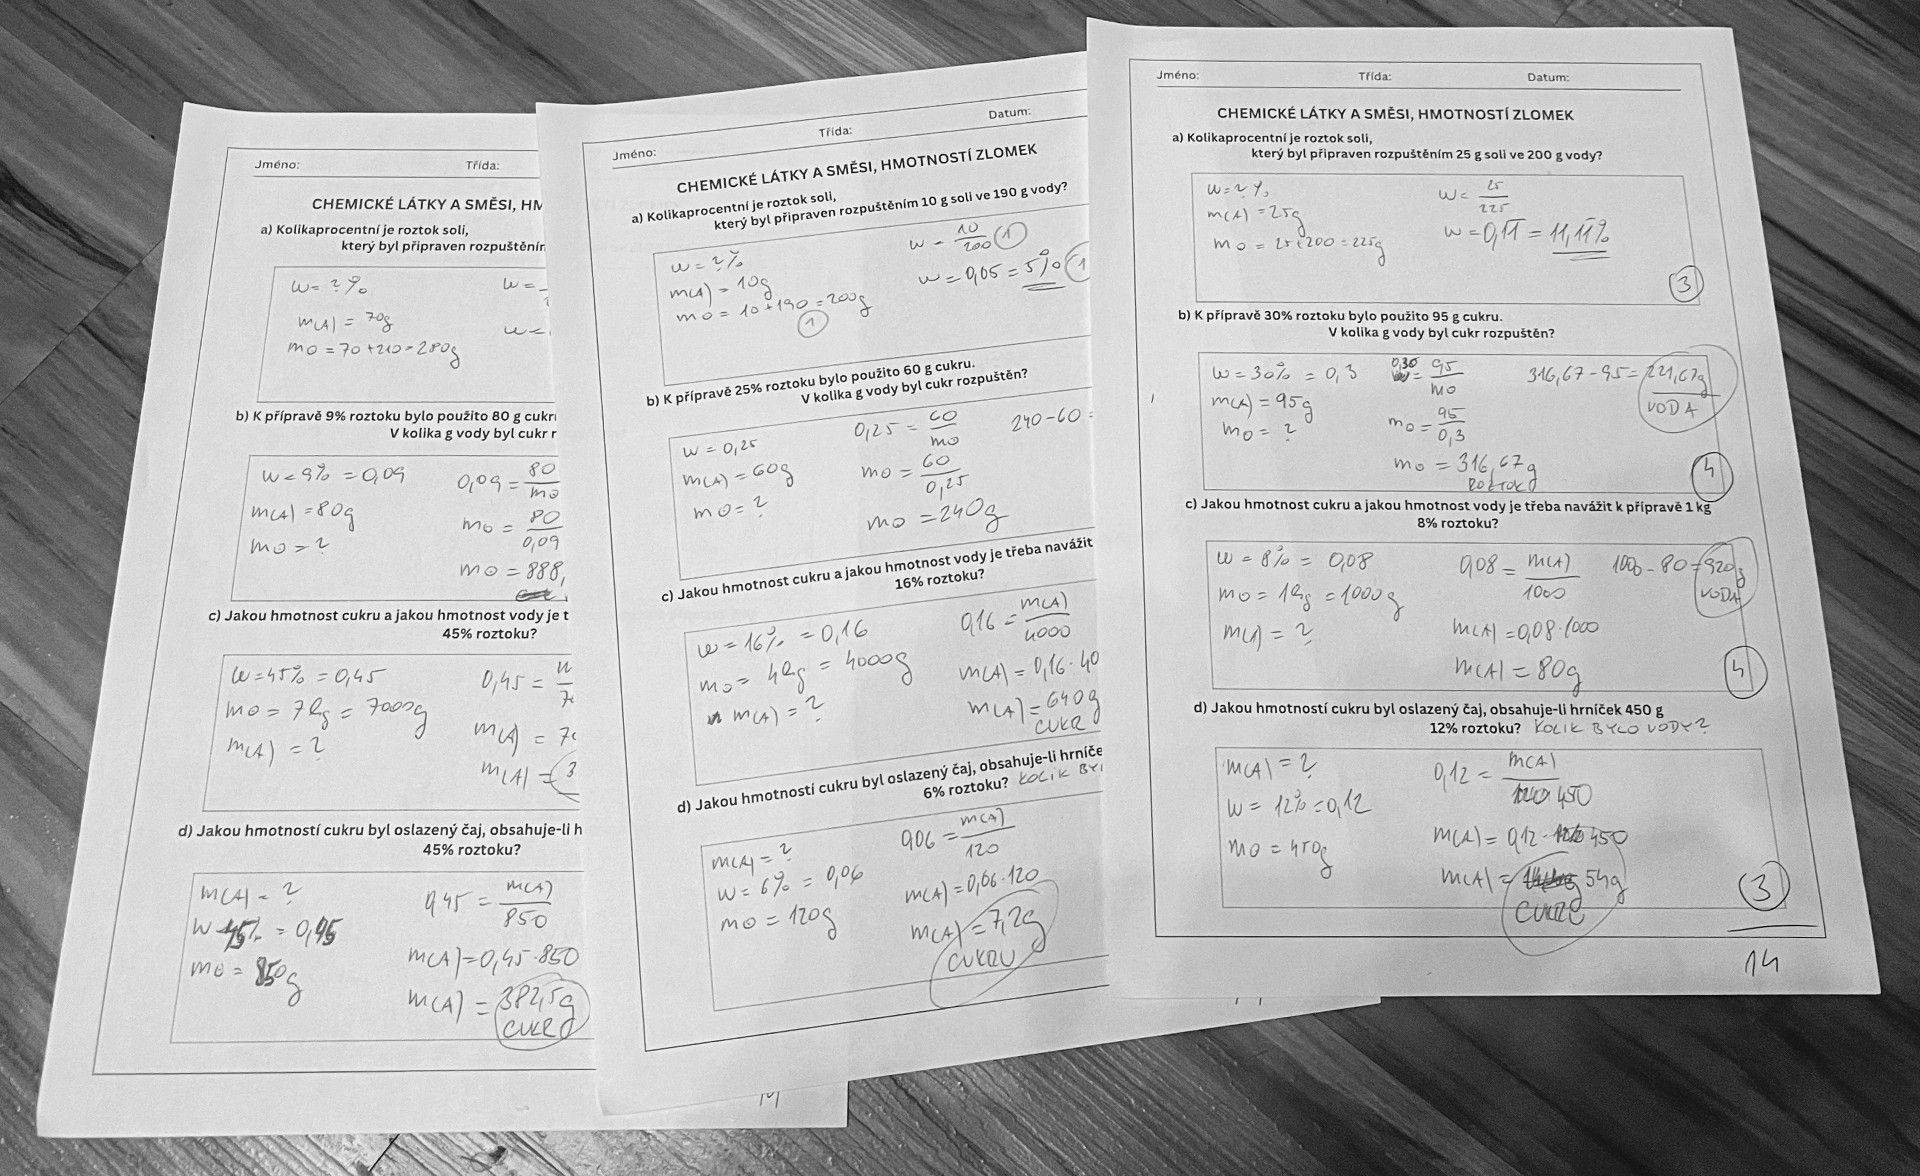 Jméno:
Třída:
CHEMICKÉ LÁTKY A SMĚSI, HM
a) Kolikaprocentní je roztok soli,
který byl připraven rozpuštěnír
w = ? %
w =
m(A) = 70g
w =
m⊙ = 70 + 210 = 280g
b) K přípravě 9% roztoku bylo použito 80 g cukru
V kolika g vody byl cukr r
w = 9% = 0,09
0,09 = 80 / m⊙
m(A) = 80g
m⊙ = 80 / 0,09
m⊙ = ?
m⊙ = 888,
c) Jakou hmotnost cukru a jakou hmotnost vody je t
45% roztoku?
w = 45% = 0,45
0,45 =
m⊙ = 7kg = 7000g
m(A) = 7
m(A) = ?
m(A) = 3
d) Jakou hmotností cukru byl oslazený čaj, obsahuje-li h
45% roztoku?
m(A) = ?
0,45 = m(A) / 850
w 45% = 0,45
m(A) = 0,45 · 850
m⊙ = 850g
m(A) = 382,5g
CUKR
14
Jméno:
Třída:
Datum:
CHEMICKÉ LÁTKY A SMĚSI, HMOTNOSTÍ ZLOMEK
a) Kolikaprocentní je roztok soli,
který byl připraven rozpuštěním 10 g soli ve 190 g vody?
w = ? %
w = 10 / 200 1
m(A) = 10g
w = 0,05 = 5% 1
m⊙ = 10 + 190 = 200g
1
b) K přípravě 25% roztoku bylo použito 60 g cukru.
V kolika g vody byl cukr rozpuštěn?
w = 0,25
0,25 = 60 / m⊙
240 - 60 =
m(A) = 60g
m⊙ = 60 / 0,25
m⊙ = ?
m⊙ = 240g
c) Jakou hmotnost cukru a jakou hmotnost vody je třeba navážit
16% roztoku?
w = 16% = 0,16
0,16 = m(A) / 4000
m⊙ = 4kg = 4000g
m(A) = 0,16 · 40
m(A) = ?
m(A) = 640g
CUKR
d) Jakou hmotností cukru byl oslazený čaj, obsahuje-li hrníče
6% roztoku? KOLIK BY
m(A) = ?
0,06 = m(A) / 120
w = 6% = 0,06
m(A) = 0,06 · 120
m⊙ = 120g
m(A) = 7,2g
CUKRU
Jméno:
Třída:
Datum:
CHEMICKÉ LÁTKY A SMĚSI, HMOTNOSTÍ ZLOMEK
a) Kolikaprocentní je roztok soli,
který byl připraven rozpuštěním 25 g soli ve 200 g vody?
w = ? %
w = 25 / 225
m(A) = 25g
w = 0,11 = 11,11%
m⊙ = 25 + 200 = 225g
3
b) K přípravě 30% roztoku bylo použito 95 g cukru.
V kolika g vody byl cukr rozpuštěn?
w = 30% = 0,3
0,30 = 95 / m⊙
316,67 - 95 = 221,67g
VODA
m(A) = 95g
m⊙ = 95 / 0,3
m⊙ = ?
m⊙ = 316,67g
ROZTOK
4
c) Jakou hmotnost cukru a jakou hmotnost vody je třeba navážit k přípravě 1 kg
8% roztoku?
w = 8% = 0,08
0,08 = m(A) / 1000
1000 - 80 = 920g
VODA
m⊙ = 1kg = 1000g
m(A) = 0,08 · 1000
m(A) = ?
m(A) = 80g
4
d) Jakou hmotností cukru byl oslazený čaj, obsahuje-li hrníček 450 g
12% roztoku? KOLIK BYLO VODY?
m(A) = ?
0,12 = m(A) / 450
w = 12% = 0,12
m(A) = 0,12 · 450
m⊙ = 450g
m(A) = 54g
CUKRU
3
14